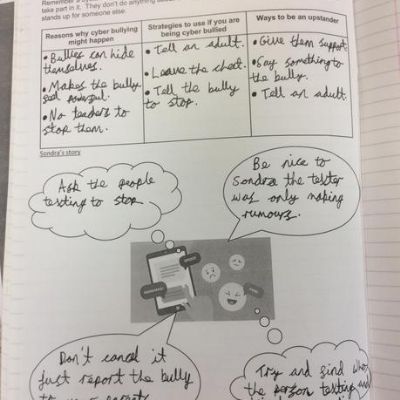 Remember a
take part in it. They don't do anything
stands up for someone else.
Reasons why cyber bullying
might happen
Strategies to use if you are
being cyber bullied
Ways to be an upstander
• Bullies can hide
themselves.
• Makes the bully
powerful.
• No teachers to
stop them.
• Tell an adult.
• Leave the chat.
• Tell the bully
to stop.
• Give them support
• Say something to
the bully.
• Tell an adult.
Sondra's story
Ask the people
texting to stop
Be nice to
Sondra the texter
was only making
rumours.
Don't cancel it
just report the bully
to
Try and find who
the person texting